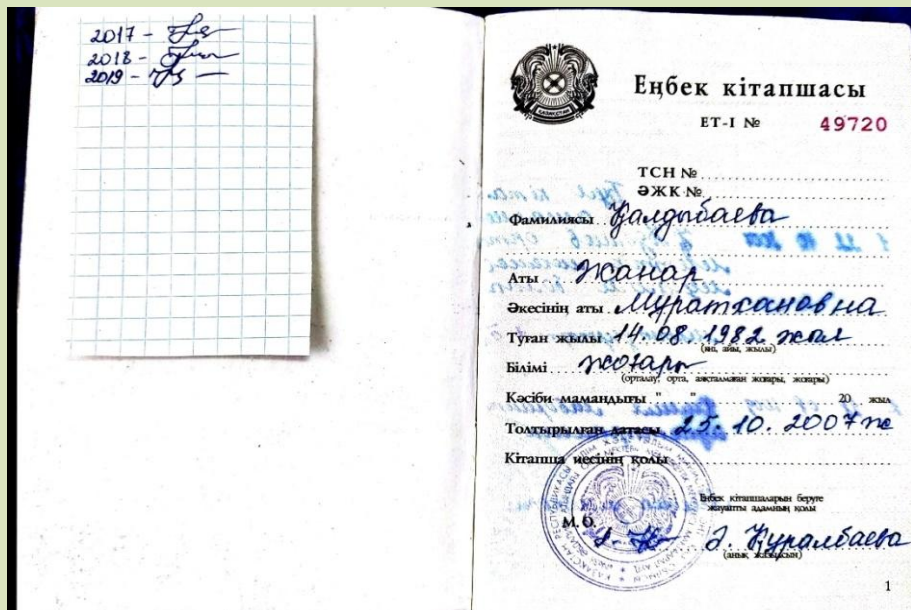 2017 -
2018 -
2019 -
ҚАЗАҚСТАН
Еңбек кітапшасы
ЕТ-I № 49720
ТСН №
ӘЖК №
Фамилиясы Қалдыбаева
Аты Жанар
Әкесінің аты Муратхановна
Туған жылы 14.08.1982 жыл
(күні, айы, жылы)
Білімі жоғары
(орталау, орта, аяқталмаған жоғары, жоғары)
Кәсіби мамандығы " " 20 жыл
Толтырылған датасы 25.10.2007 ж
Кітапша иесінің қолы
Еңбек кітапшаларын беруге
жауапты адамның қолы
М.О.
Ә. Құралбаева
(анық жазылсын)
1